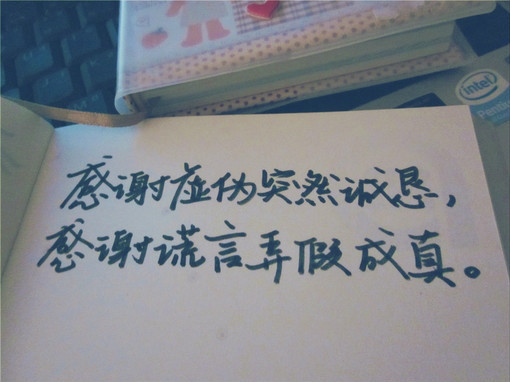 感谢虚伪突然诚恳，
感谢谎言弄假成真。
intel
Pentium